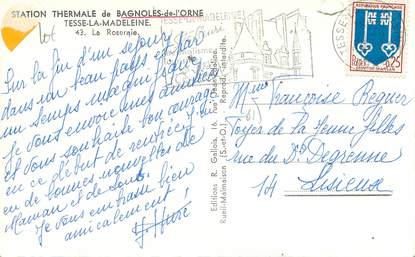 STATION THERMALE de BAGNOLES-de-l'ORNE
TESSE-LA-MADELEINE.
43. La Roseraie.
Sur la fin d'un séjour
dans un beau pays et par
un temps magnifique
Je vous envoie mes amitiés
et vous souhaite bon courage
en ce début de rentrée. J'ai
eu de bonnes nouvelles de
Maman et de tous.
Je vous embrasse bien
amicalement !
Editions R. Gallois, 10, rue Désiré
Rueil-Malmaison (S.-et-O.) - Reprod. interdite.
TESSE-LA-MADELEINE
REPUBLIQUE FRANÇAISE
0,25
POSTES
Françoise
Foyer de la Jeune fille
rue du Dr Degrenne
14 Lisieux